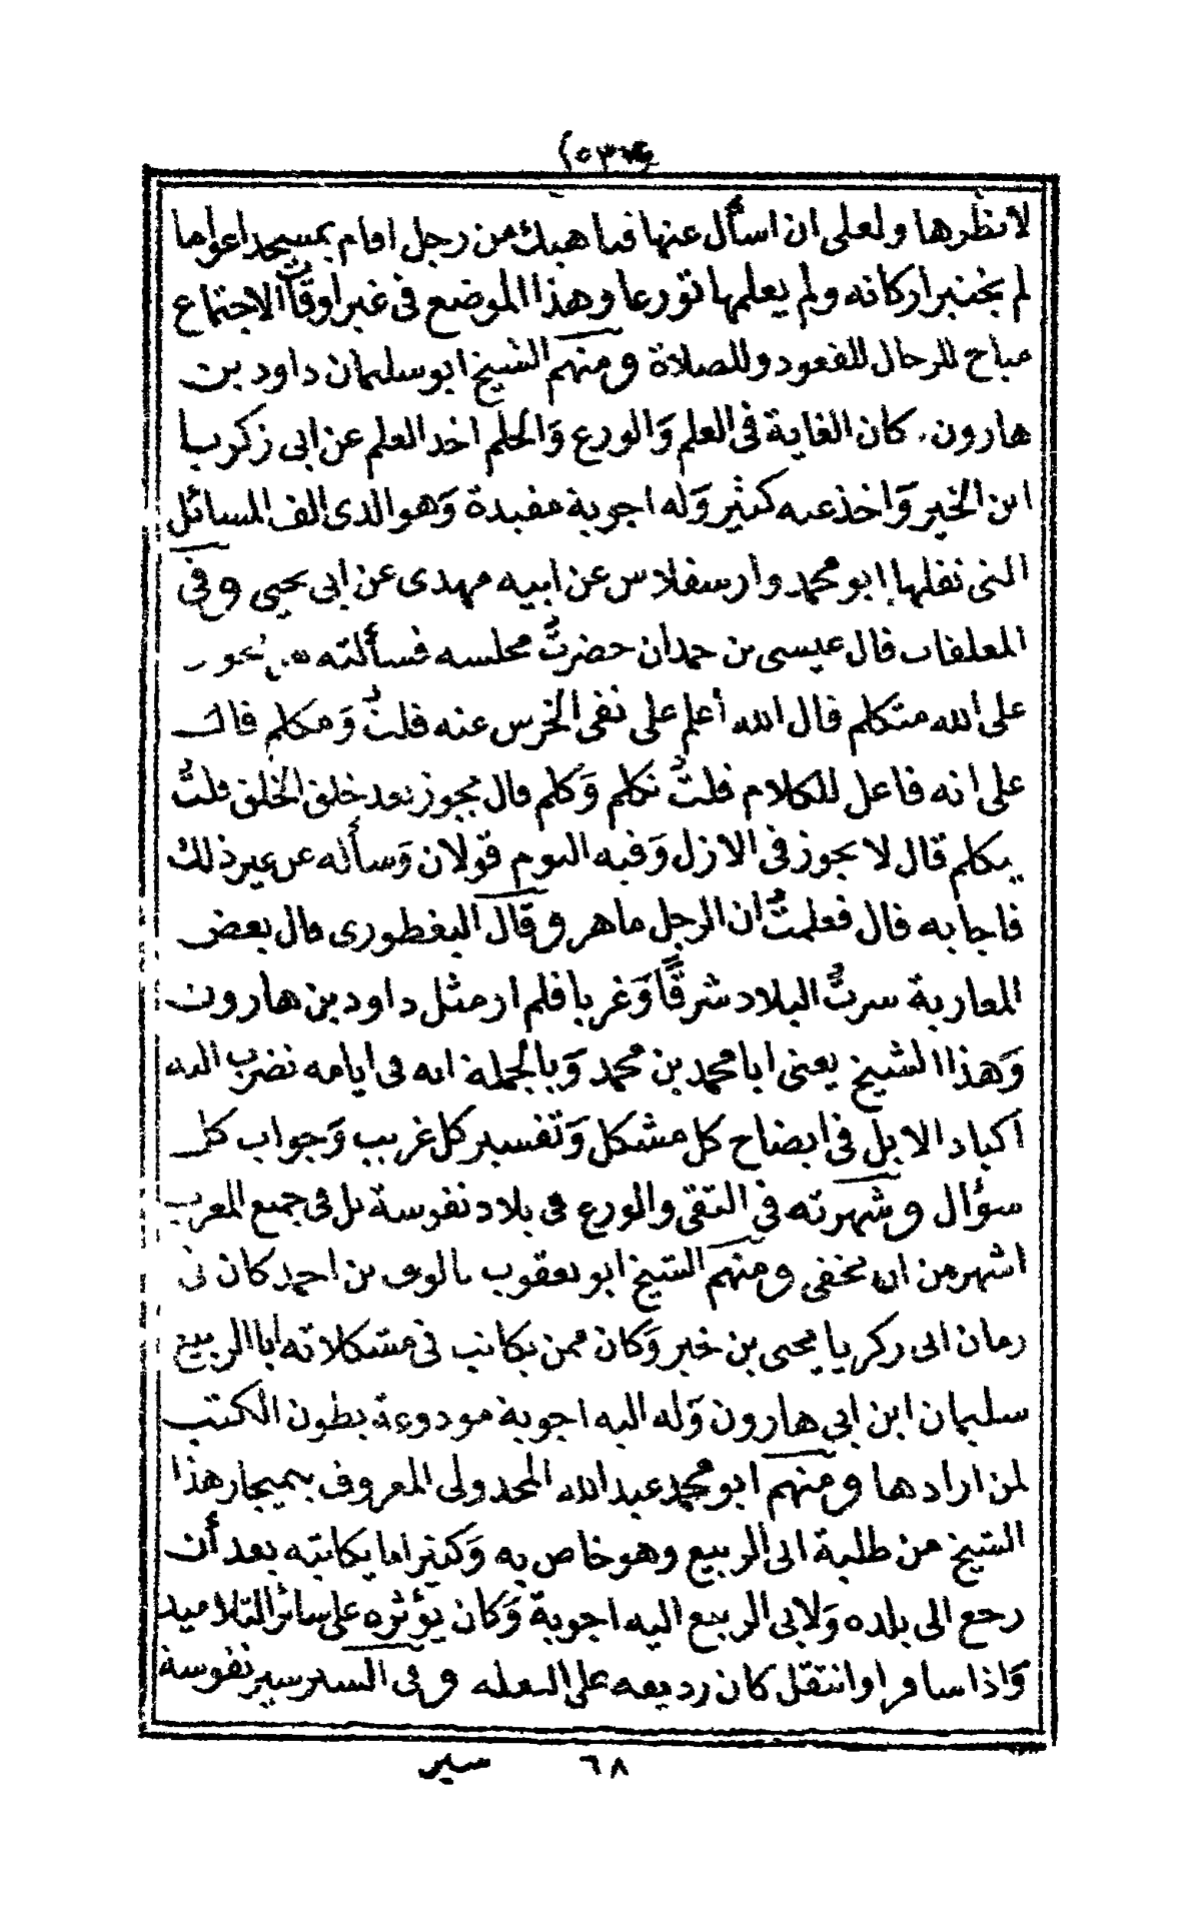 لانظرها ولعلى ان اسأل عنها فما هبك من رجل اقام بمسجد اعواما
لم يختبر اركانه ولم يعلمها تورعا وهذا الموضع فى غير اوقات الاجتماع
مباح للرحال للقعود وللصلاة ومنهم الشيخ ابو سليمان داود بن
هارون. كان الغاية فى العلم وَالورع وَالحلم اخد العلم عن ابى زكريا
ابن الخير وَاخذ عنه كثير وَله اجوبة مفيدة وَهو الدى الف المسائل
التى نقلها ابو محمد وارسفلاس عن ابيه مهدى عن ابى يحيى وفى
المعلقات قال عيسى بن حمدان حضرتُ مجلسه فسألته يجوز
على الله متكلم قال الله أعلم على نفى الخرس عنه قلتُ وَمكلم قال
على انه فاعل للكلام قلتُ تكلم وَكلم قال يجوز بعد خلق الخلق قلتُ
يتكلم قال لا يجوز فى الازل وَفيه اليوم قولان وَسأله عن غير ذلك
فاجابه قال فعلمتُ ان الرجل ماهر وقال البغطورى قال بعض
المغاربة سرتُ البلاد شرقًا وَغربا فلم ار مثل داود بن هارون
وَهذا الشيخ يعنى ابا محمد بن محمد وَبالجملة انه فى ايامه تضرب اليه
اكباد الابل فى ايضاح كل مشكل وَتفسير كل غريب وَجواب كل
سؤال وشهرته فى التقى والورع فى بلاد نفوسة بل فى جميع المغرب
اشهر من ان تخفى ومنهم الشيخ ابو يعقوب بن احمد كان فى
زمان ابى زكريا يحيى بن خير وَكان ممن يكاتب فى مشكلاته أبا الربيع
سليمان ابن ابى هارون وَله اليه اجوبة مودوعة بطون الكتب
لمن ارادها ومنهم ابو محمد عبد الله المجدولى المعروف هذا
الشيخ من طلبة ابى الربيع وهو خاص به وَكثيرا ما يكاتبه بعد أن
رجع الى بلده وَلابى الربيع اليه اجوبة وَكان يؤثره على سائر التلاميد
وَاذا سافر او انتقل كان رديفه على البغلة وفى السير سير نفوسة
٦٨ سير